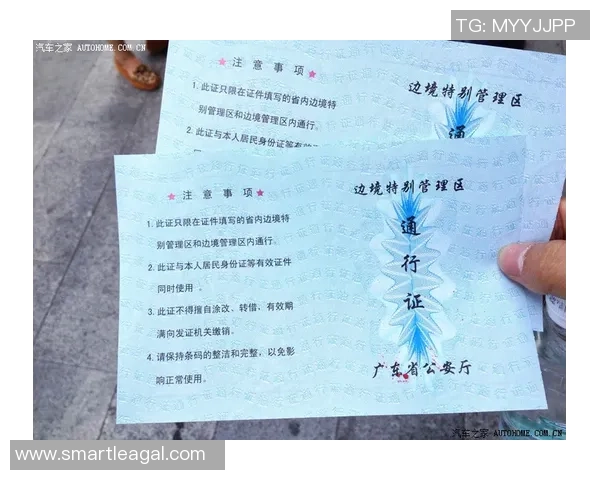 TG: MYYJJPP
汽车之家 AUTOHOME.COM.CN
★ 注 意 事 项 ★
1. 此证只限在证件填写的省内边境特
别管理区和边境管理区内通行。
2. 此证与本人居民身份证等有效
边境特别管理区
通
★ 注 意 事 项 ★
1. 此证只限在证件填写的省内边境特
别管理区和边境管理区内通行。
2. 此证与本人居民身份证等有效证件
同时使用 。
3. 此证不得擅自涂改、转借，有效期
满向发证机关缴销。
4. 请保持条码的整洁和完整，以免影
响正常使用。
边境特别管理区
通
行
证
广东省公安厅
汽车之家 AUTOHOME.COM.CN
www.smartleagal.com